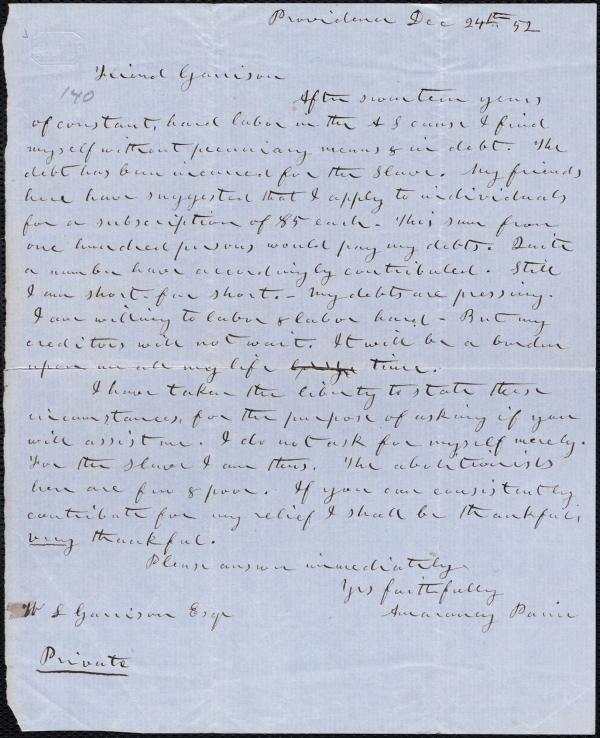 Providence Dec 24th 52
Friend Garrison
140
After seventeen years
of constant, hard labor in the A S cause I find
myself without pecuniary means & in debt. The
debt has been incurred for the Slave. My friends
here have suggested that I apply to individuals
for a subscription of $5 each. This sum from
one hundred persons would pay my debts. Quite
a number have accordingly contributed. Still
I am short - far short. - My debts are pressing.
I am willing to labor & labor hard - But my
creditors will not wait. It will be a burden
upon me all my life time.
I have taken the liberty to state these
circumstances, for the purpose of asking if you
will assist me. I do not ask for myself merely.
For the slave I am thus. The abolitionists
here are few & poor. If you can consistently
contribute for my relief I shall be thankful;
very thankful.
Please answer immediately
Yrs faithfully
Amarancy Paine
W L Garrison Esqr
Private